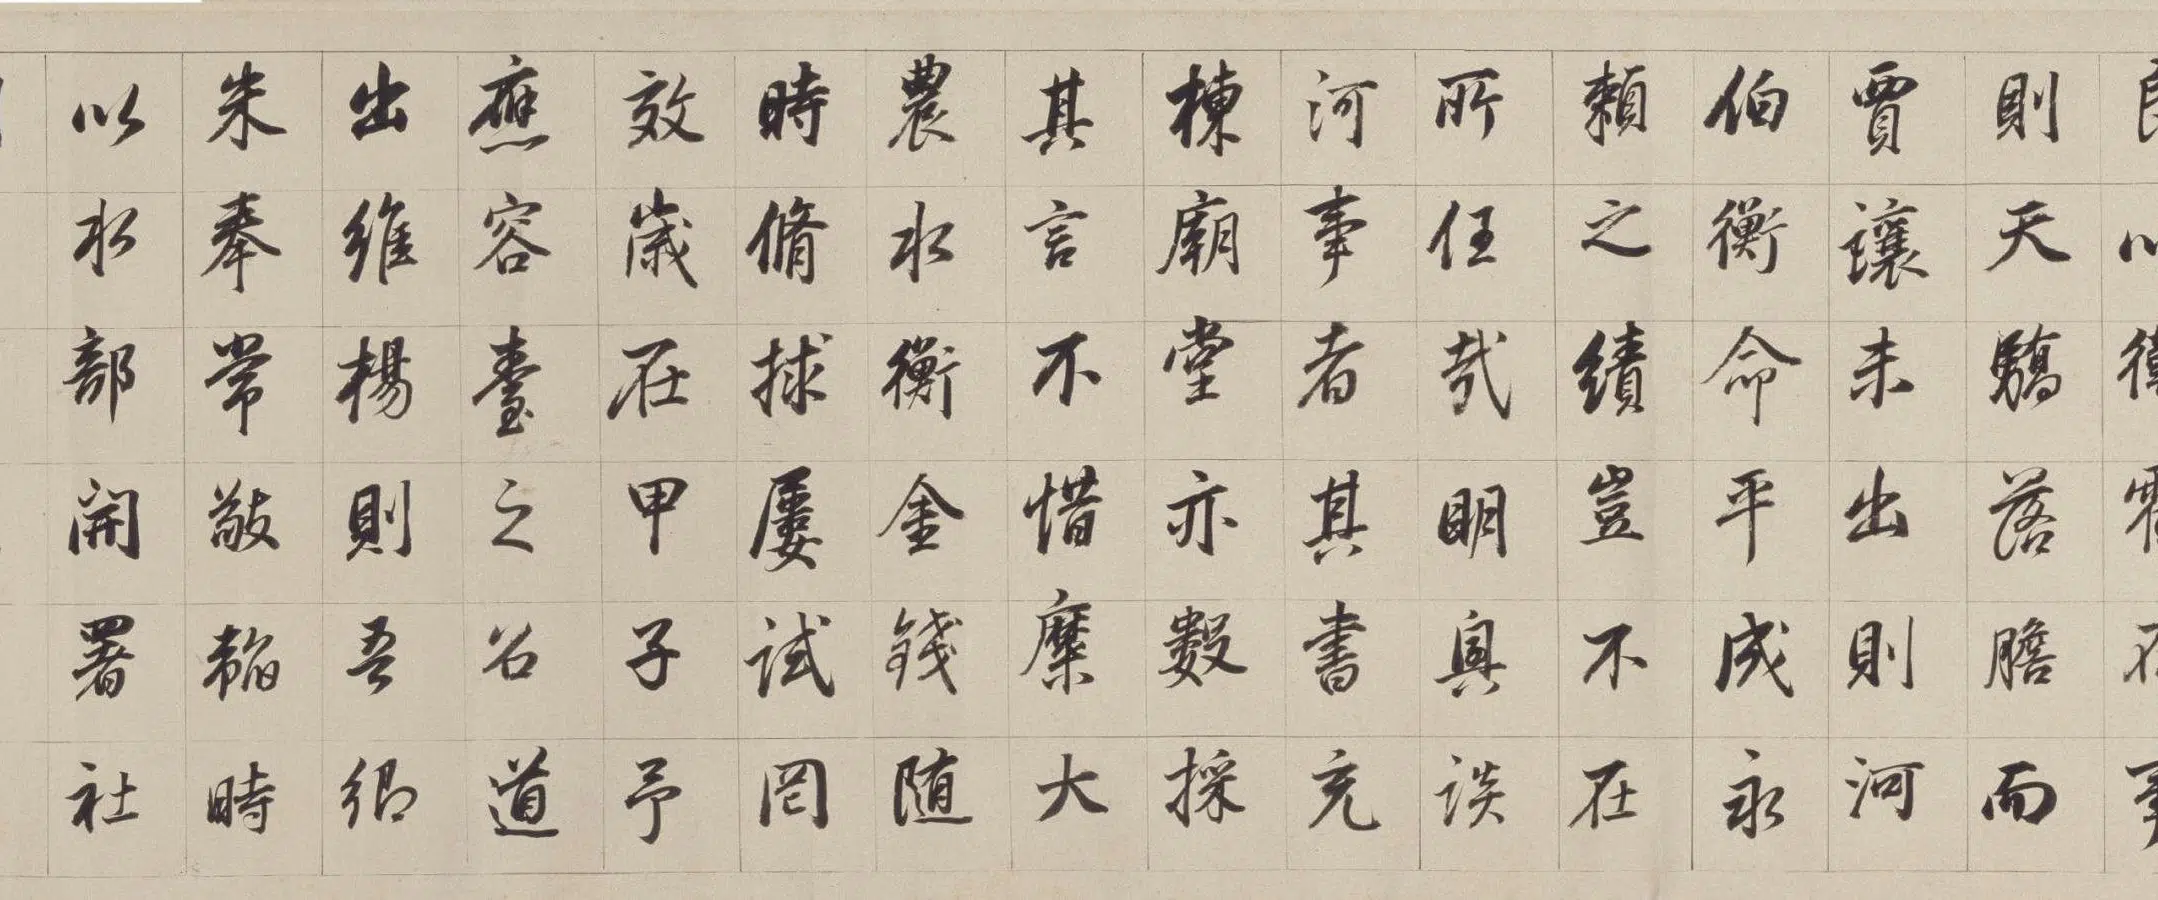 則天驕落膽而
賈讓未出則河
伯衡命平成永
賴之績豈不在
所任哉明興談
河事者其書充
棟廟堂亦數採
其言不惜糜大
農水衡金錢随
時脩捄屢試罔
效歲在甲子予
應容臺之召道
出維楊則吾鄉
朱奉常敬韜時
以水部開署社